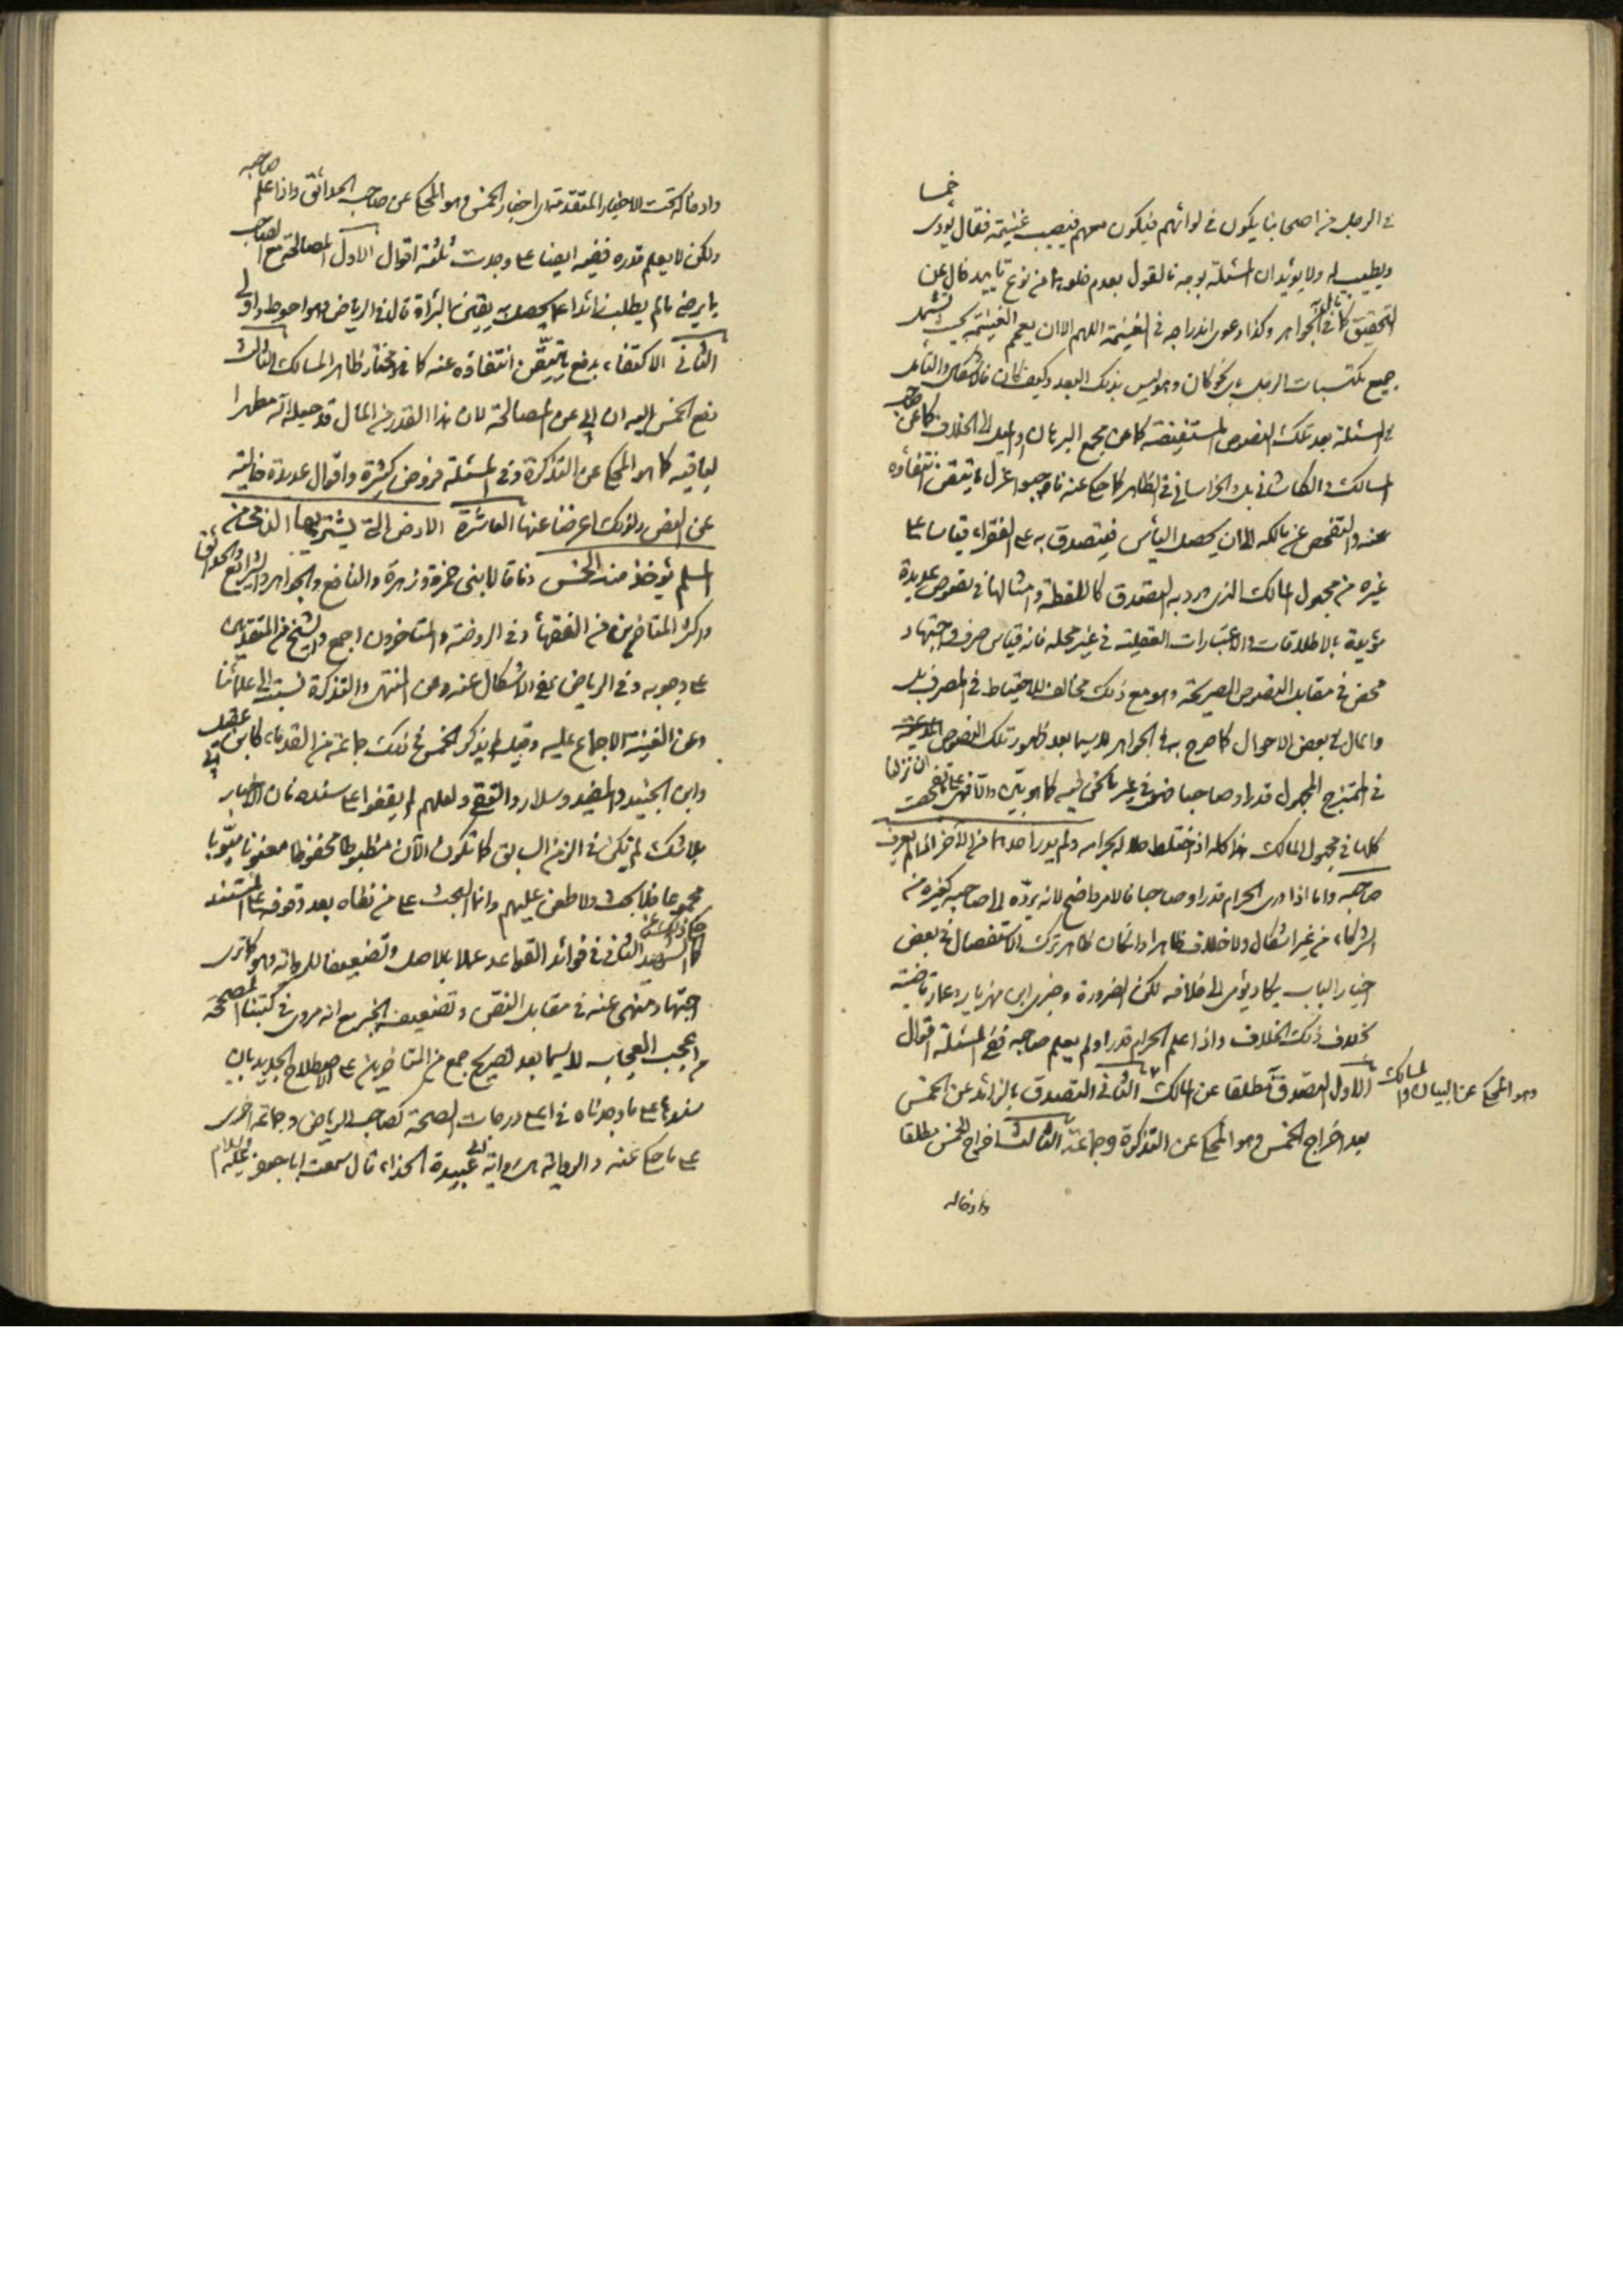 في الرجل من اصحابنا يكون في لوائهم فيكون معهم فيصيب غنيمة فقال يؤدى خمسا
ويطيب له ولا يؤيدان المسئلة بوجه فالقول بعدم خلوهما من نوع تاييد خال عن
التحقيق كما في الجواهر وكذا دعوى اندراجه في الغنيمة اللهم الا ان يعمم الغنيمة بحيث تشمل
جميع مكتسبات الرجل باى نحو كان وهو ليس بذلك البعد وكيف كان فلا اشكال والتامل
في المسئلة بعد تلك النصوص المستفيضة كما عن مجمع البرهان والميل الى الخلاف كما عن صاحب
المدارك والكاشانى بل والخراسانى في الظاهر كما حكى عنه فاوجبوا عزل ما تيقن انتفاؤه
عنه والتفحص عن مالكه الى ان يحصل الياس فيتصدق به على الفقراء قياسا على
غيره من مجهول المالك الذى ورد به التصدق كاللقطة وامثالها في نصوص عديدة
مؤيدة بالاطلاقات والاعتبارات العقلية في غير محله فانه قياس صرف واجتهاد
محض في مقابل النصوص الصريحة وهو مع ذلك مخالف للاحتياط في المصرف بل
والمال في بعض الاحوال كما صرح به في الجواهر لا سيما بعد ظهور تلك النصوص
في الممتزج المجهول قدرا وصاحبا في غير ما نحن فيه كما هو بين
كلها في مجهول المالك هذا كله اذا اختلط حلاله بحرامه ولم يدر احدهما من الاخر
صاحبه واما اذا درى الحرام قدرا وصاحبا فالامر واضح لانه يرده الى صاحبه كغيره من
الشركاء من غير اشكال ولا خلاف ظاهرا وان كان ظاهر ترك الاستفصال في بعض
اخبار الباب يكاد يؤمى الى خلافه لكن الضرورة وخبرى ابن مهزيار وعمار قاضية
بخلاف ذلك الخلاف واذا علم الحرام قدرا ولم يعلم صاحبه ففى المسئلة اقوال
الاول التصدق مطلقا عن المالك الثانى التصدق بالزائد عن الخمس
وهو المحكى عن البيان والمسالك
بعد اخراج الخمس وهو المحكى عن التذكرة وجماعة الثالث اخراج الخمس مطلقا
وادخاله
وادخاله تحت الاخبار المتقدمة اى اخبار الخمس وهو المحكى عن صاحب الحدائق واذا علم صاحبه
ولكن لا يعلم قدره ففيه ايضا على ما وجدت ثلثة اقوال الاول المصالحة مع الصاحب
بما يرضى ما لم يطلب زائدا عما يحصل به يقين البرائة قال في الرياض وهو احوط واولى
الثانى الاكتفاء بدفع ما تيقن انتفاؤه عنه كما هو مختار ظاهر المسالك الثالث
دفع الخمس اليه ان ابى عن المصالحة لان هذا القدر من المال قد جعله الله مطهرا
لباقيه كما هو المحكى عن التذكرة وفي المسئلة فروض كثيرة واقوال عديدة خالية
عن النص ولذلك اعرضنا عنها العاشرة الارض التى يشتريها الذمى من
المسلم يؤخذ منه الخمس وفاقا لابنى حمزة وزهرة والنافع والجواهر والشرايع والحدائق
واكثر المتاخرين من الفقهاء وفي الروضة والمتاخرون اجمع والشيخ من المتقدمين
على وجوبه وفي الرياض نفى الاشكال عنه وعن المنتهى والتذكرة نسبته الى علمائنا
وعن الغنية الاجماع عليه وقيل لم يذكر الخمس في ذلك جماعة من القدماء كابن ابى عقيل
وابن الجنيد والمفيد وسلار والتقى ولعلهم لم يقفوا على سنده فان الاخبار
بلا شك لم تكن في الزمن السابق كما تكون الان مظبوطا محفوظا معنونا مبوبا
مجموعا فلا بحث ولا طعن عليهم وانما البحث على من نفاه بعد وقوفه على المستند
كالشهيد الثانى في فوائد القواعد عملا بالاصل وتضعيفا للرواية وهو كما ترى
اجتهاد منهى عنه في مقابل النص وتضعيف الخبر مع انه مروى في كتبنا المصححة
من اعجب العجاب لا سيما بعد تصريح جمع من المتاخرين على الاصطلاح الجديد بان
سندها على ما وجدناه في اعلى درجات الصحة كصاحب الرياض وجماعة اخرى
على ما حكى عنه والرواية هى رواية ابى عبيدة الحذاء قال سمعت ابا جعفر عليه السلام